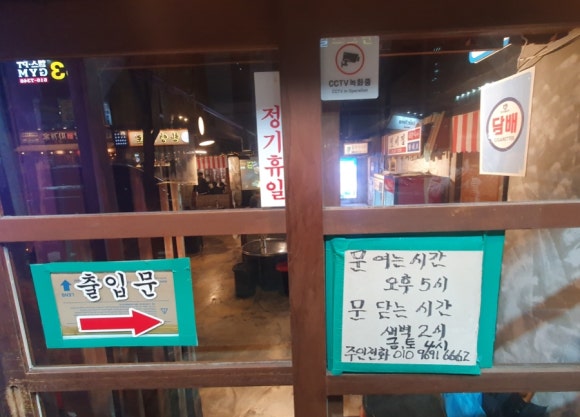 3
헬스·PT
GYM
CCTV녹화중
CCTV in Operation
정기휴일
담배
출입문
문 여는 시간
오후 5시
문 닫는 시간
새벽 2시
금.토 4시
주인전화 010 9691 6662